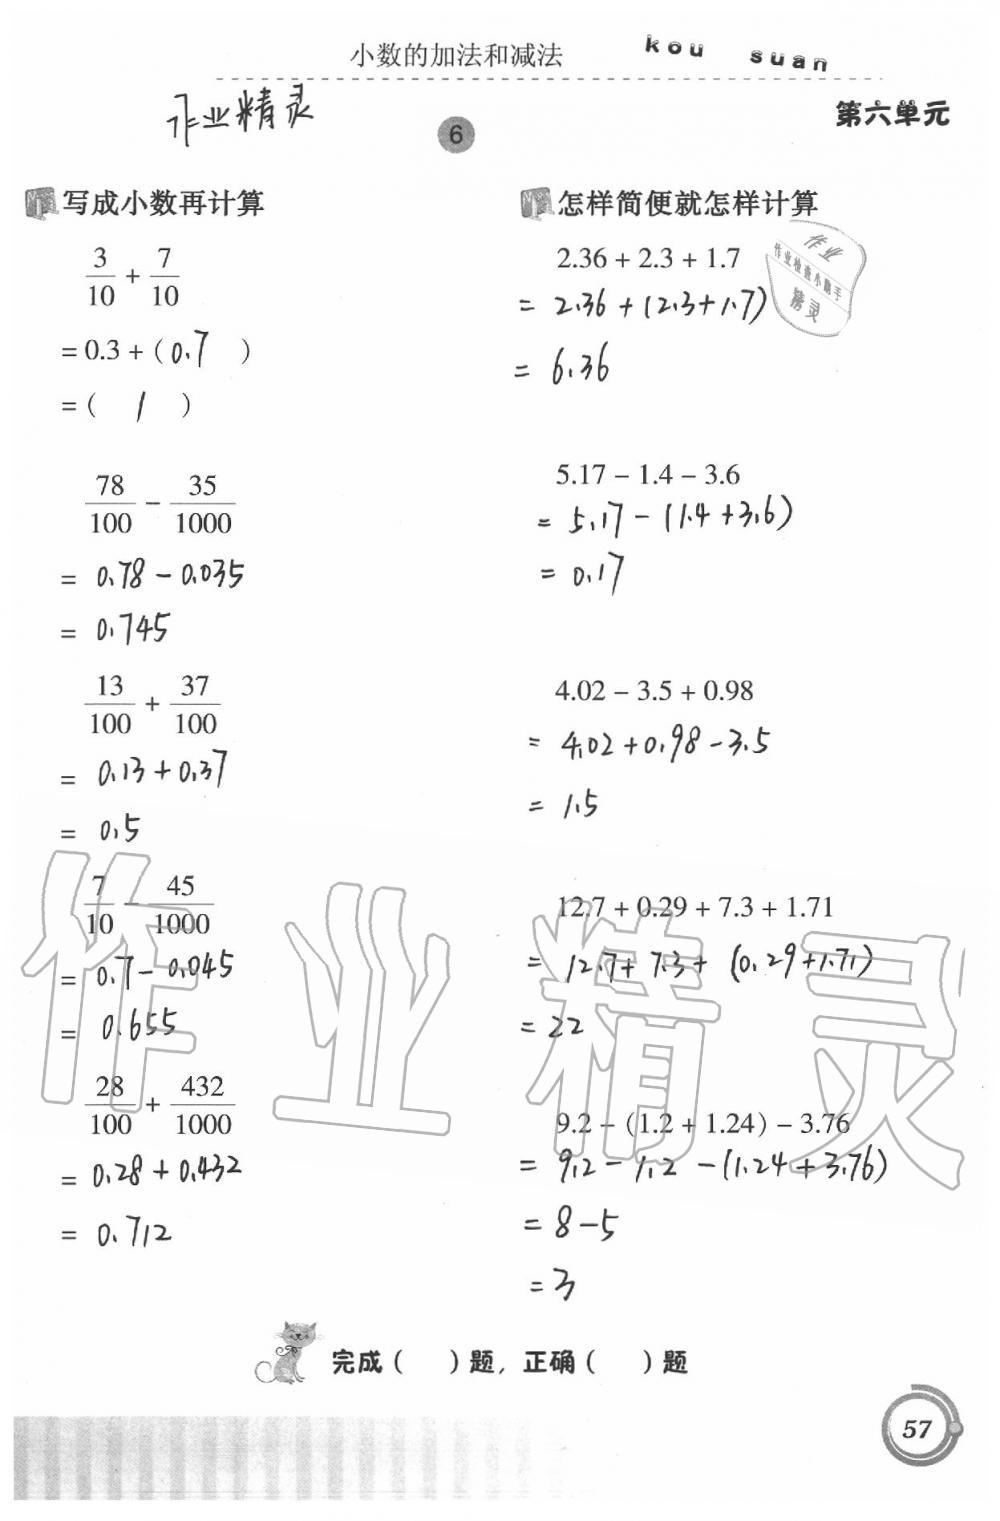 小数的加法和减法 kou suan
第六单元
作业精灵
6
写成小数再计算
3/10 + 7/10
= 0.3 + ( 0.7 )
= ( 1 )
78/100 - 35/1000
= 0.78 - 0.035
= 0.745
13/100 + 37/100
= 0.13 + 0.37
= 0.5
7/10 - 45/1000
= 0.7 - 0.045
= 0.655
28/100 + 432/1000
= 0.28 + 0.432
= 0.712
怎样简便就怎样计算
2.36 + 2.3 + 1.7
= 2.36 + (2.3 + 1.7)
= 6.36
5.17 - 1.4 - 3.6
= 5.17 - (1.4 + 3.6)
= 0.17
4.02 - 3.5 + 0.98
= 4.02 + 0.98 - 3.5
= 1.5
12.7 + 0.29 + 7.3 + 1.71
= 12.7 + 7.3 + (0.29 + 1.71)
= 22
9.2 - (1.2 + 1.24) - 3.76
= 9.2 - 1.2 - (1.24 + 3.76)
= 8 - 5
= 3
作业
作业检查小助手
精灵
作业精灵
完成( )题，正确( )题
57